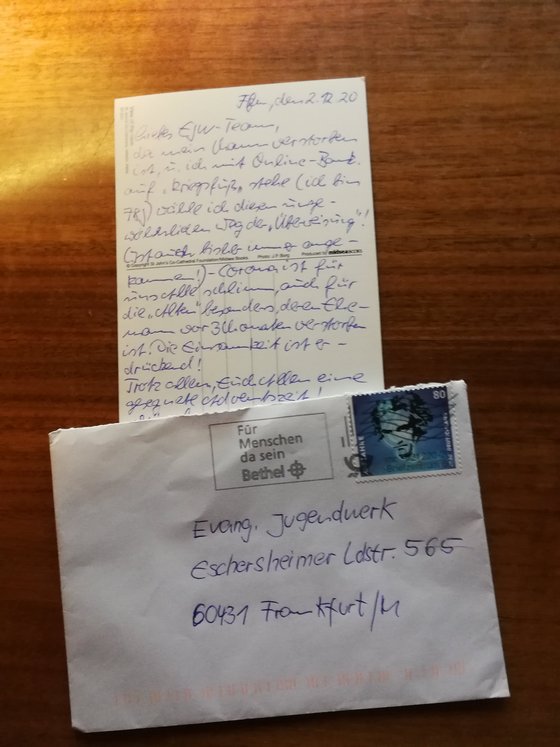 Ffm, den 2.12.20
Liebes EJW-Team,
da mein Mann verstorben
ist, u. ich mit Online-Bank.
auf "Kriegsfuß" stehe (ich bin
78) wähle ich diesen unge-
wöhnlichen Weg der "Überweisung"!
(ist auch bisher immer ange-
© Copyright St John's Co-Cathedral Foundation/Midsea Books. Photo: J.P. Borg Produced by midsea BOOKS
kommen!) - Corona ist für
uns alle schlimm, auch für
die "Alten" besonders, deren Ehe-
mann vor 3 Monaten verstorben
ist. Die Einsamkeit ist er-
drückend!
Trotz allem, Euch allen eine
gesegnete Adventszeit!
Für
Menschen
da sein
Bethel
80
Evang. Jugendwerk
Eschersheimer Ldstr. 565
60431 Frankfurt/M